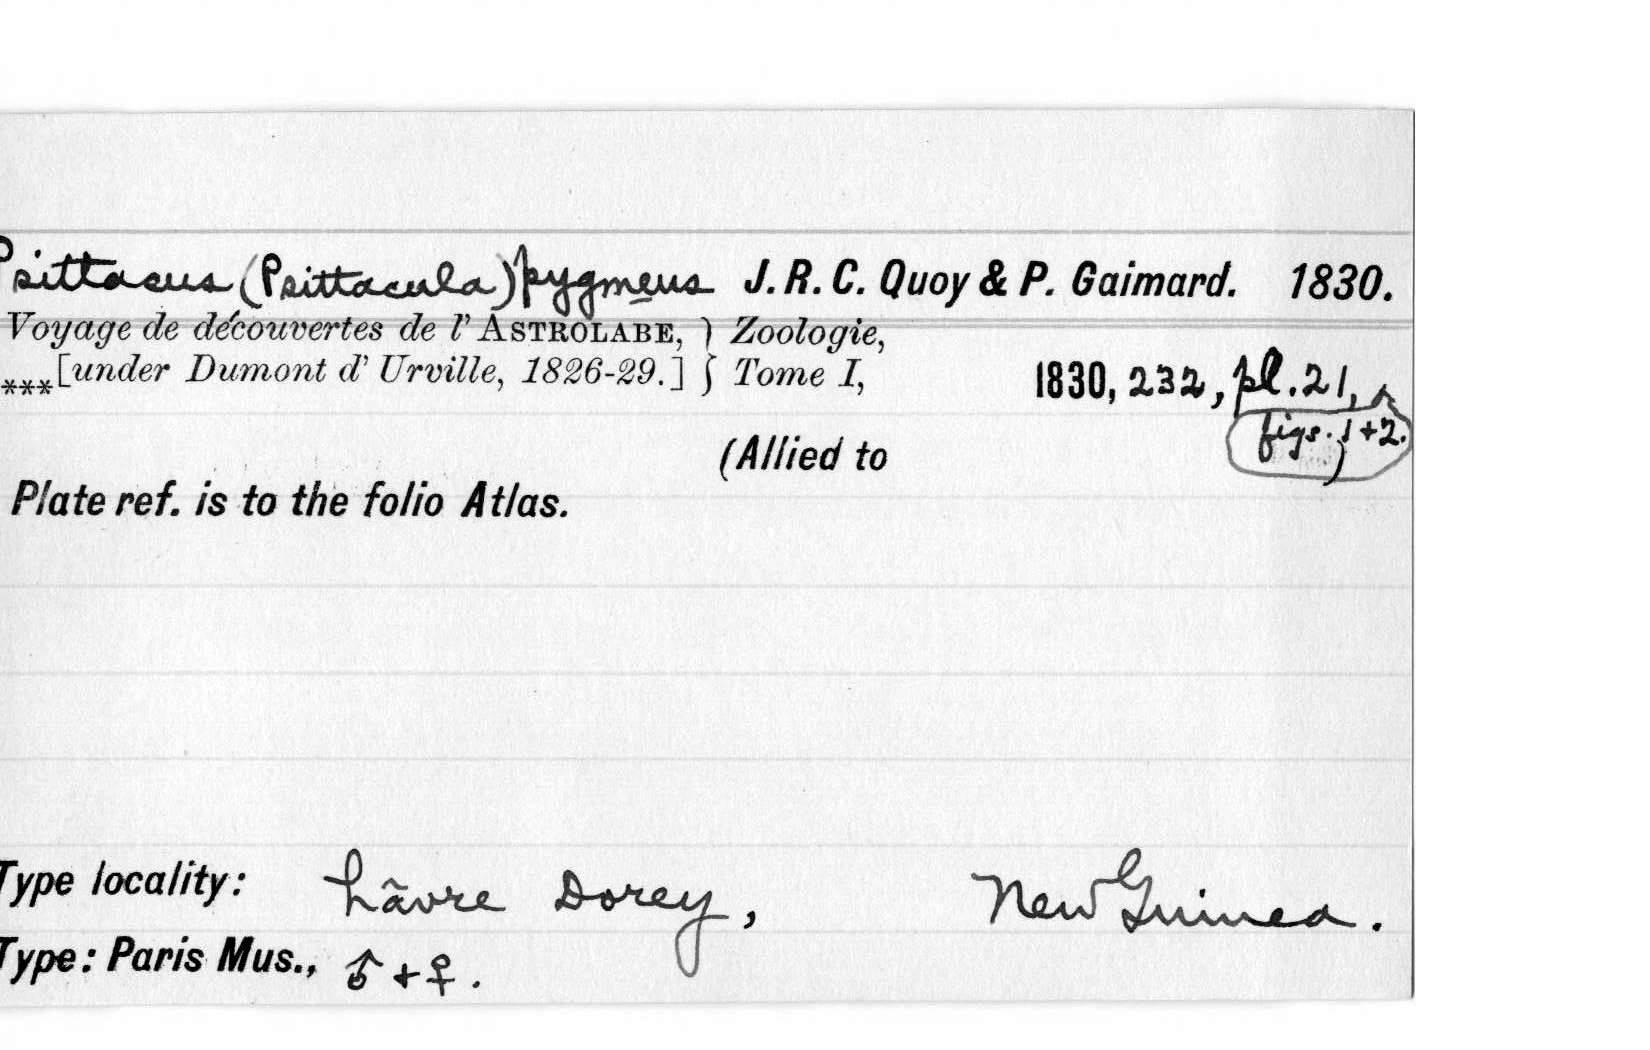 Psittacus (Psittacula) pygmeus J. R. C. Quoy & P. Gaimard. 1830.
Voyage de découvertes de l' ASTROLABE, } Zoologie,
***[under Dumont d' Urville, 1826-29.] } Tome I, 1830, 232, pl. 21,
figs. 1+2.
(Allied to )
Plate ref. is to the folio Atlas.
Type locality: hâvre Dorey, New Guinea.
Type: Paris Mus., ♂ + ♀.